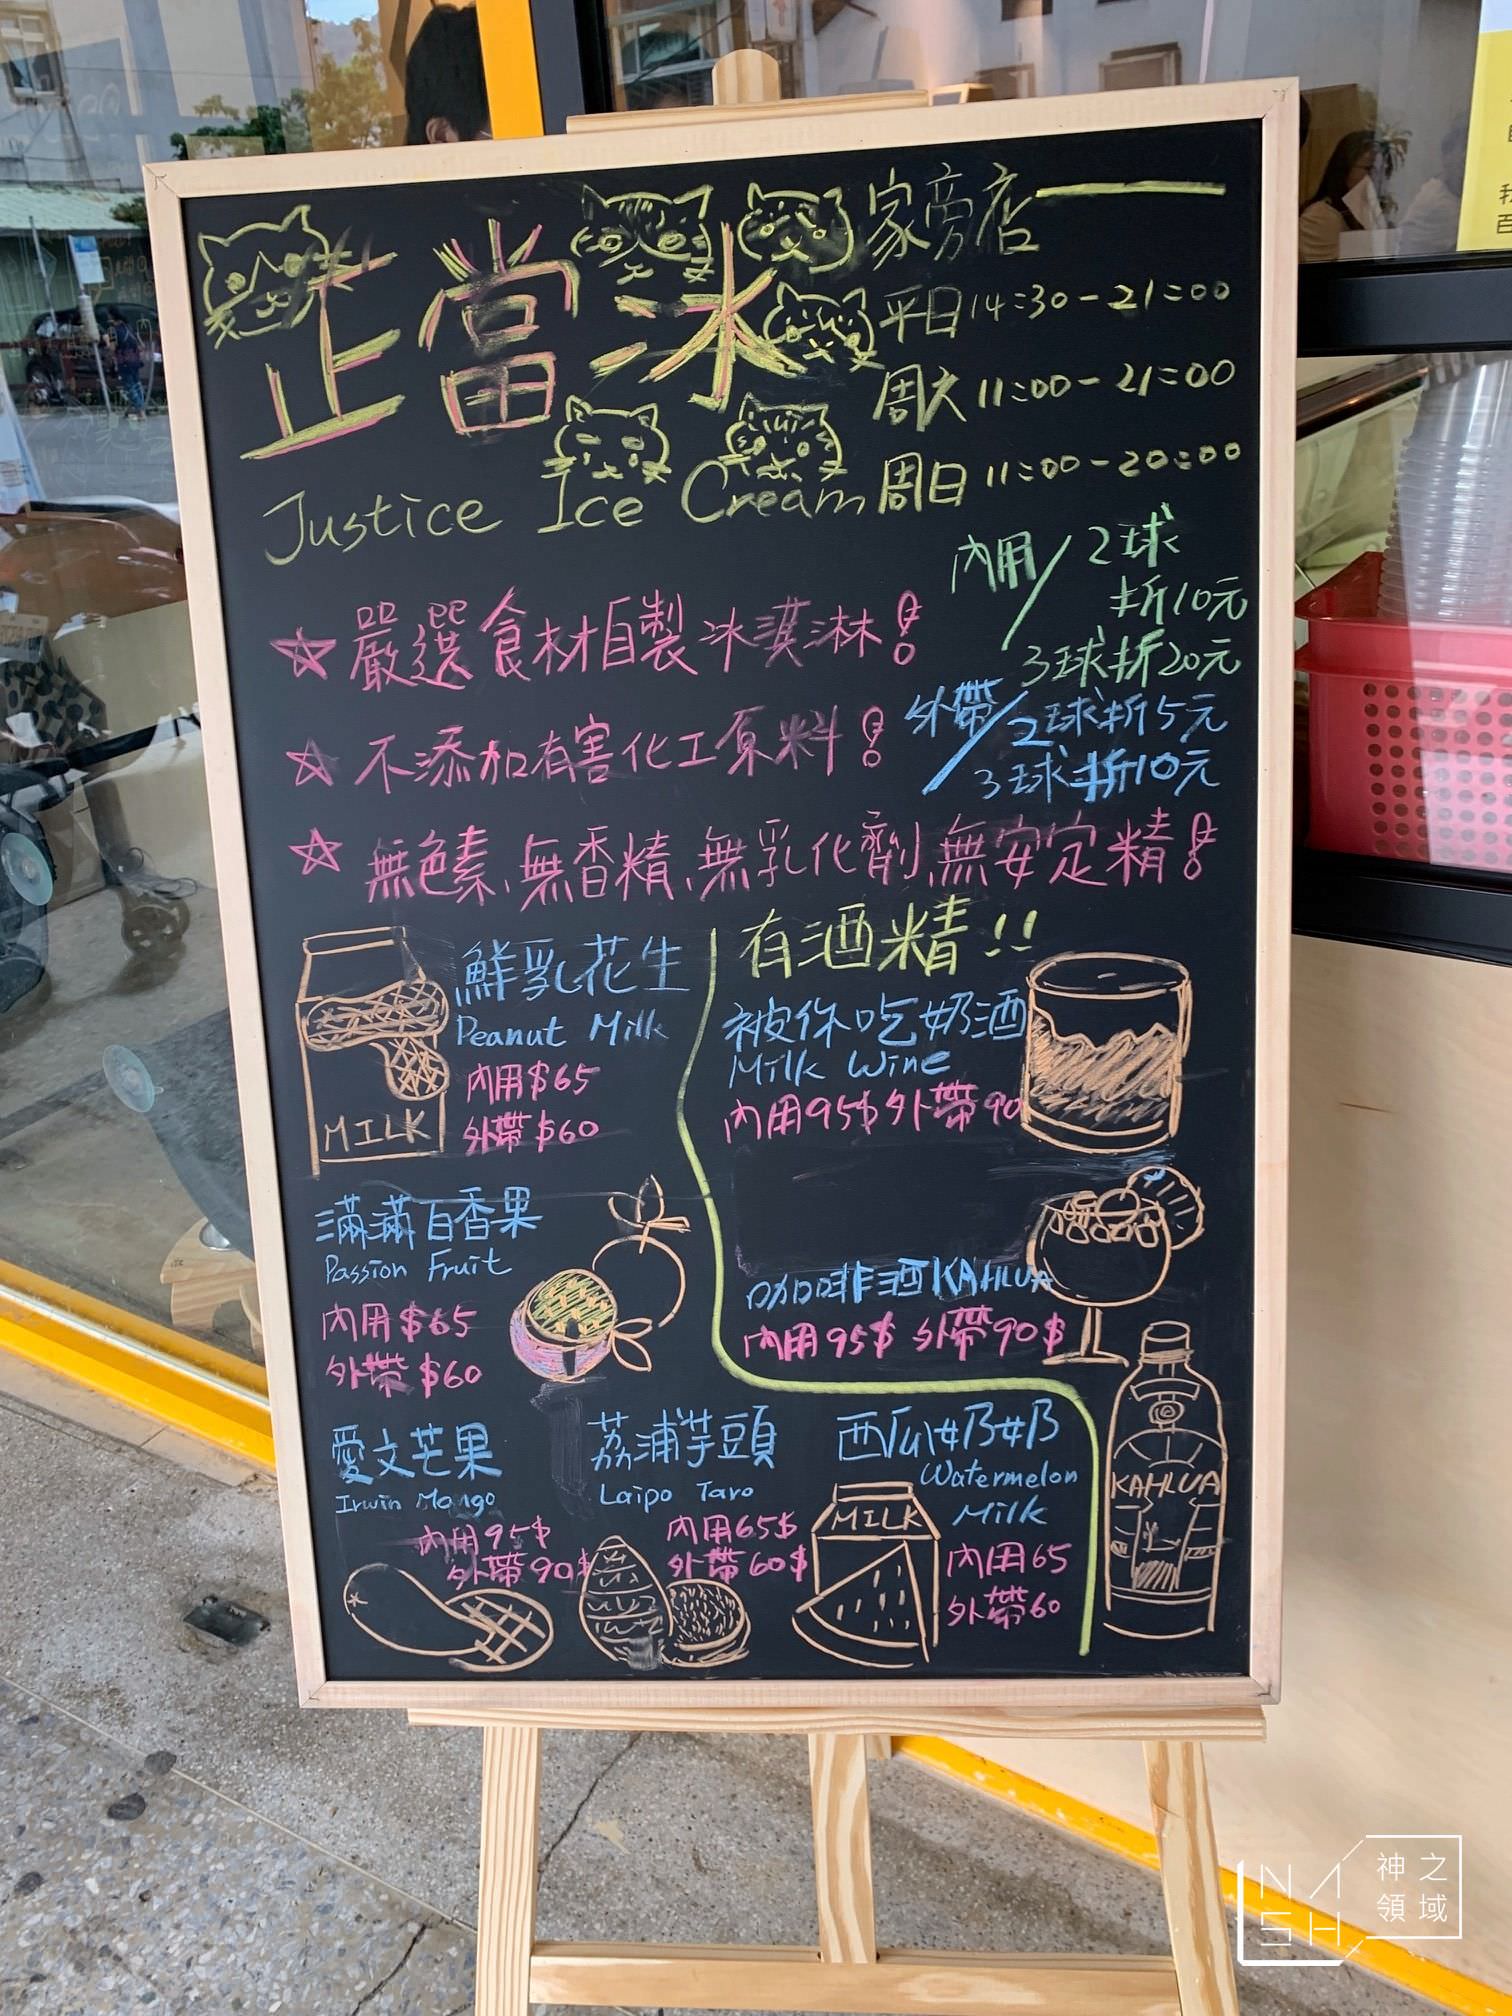 正當冰
家旁店
平日14:30-21:00
周六11:00-21:00
周日11:00-20:00
Justice Ice Cream
內用/2球
折10元
3球折20元
外帶/2球折5元
3球折10元
☆嚴選食材自製冰淇淋!
☆不添加有害化工原料!
☆無色素、無香精、無乳化劑、無安定精!
鮮乳花生
Peanut Milk
內用$65
外帶$60
MILK
滿滿百香果
Passion Fruit
內用$65
外帶$60
有酒精!!
被你吃奶酒
Milk Wine
內用95$外帶90
咖啡酒KAHLUA
內用95$ 外帶90$
KAHLUA
愛文芒果
Irwin Mango
內用95$
外帶90$
荔浦芋頭
Laipo Taro
內用65$
外帶60$
西瓜奶奶
Watermelon
Milk
MILK
內用65
外帶60
NASH
神之
領域